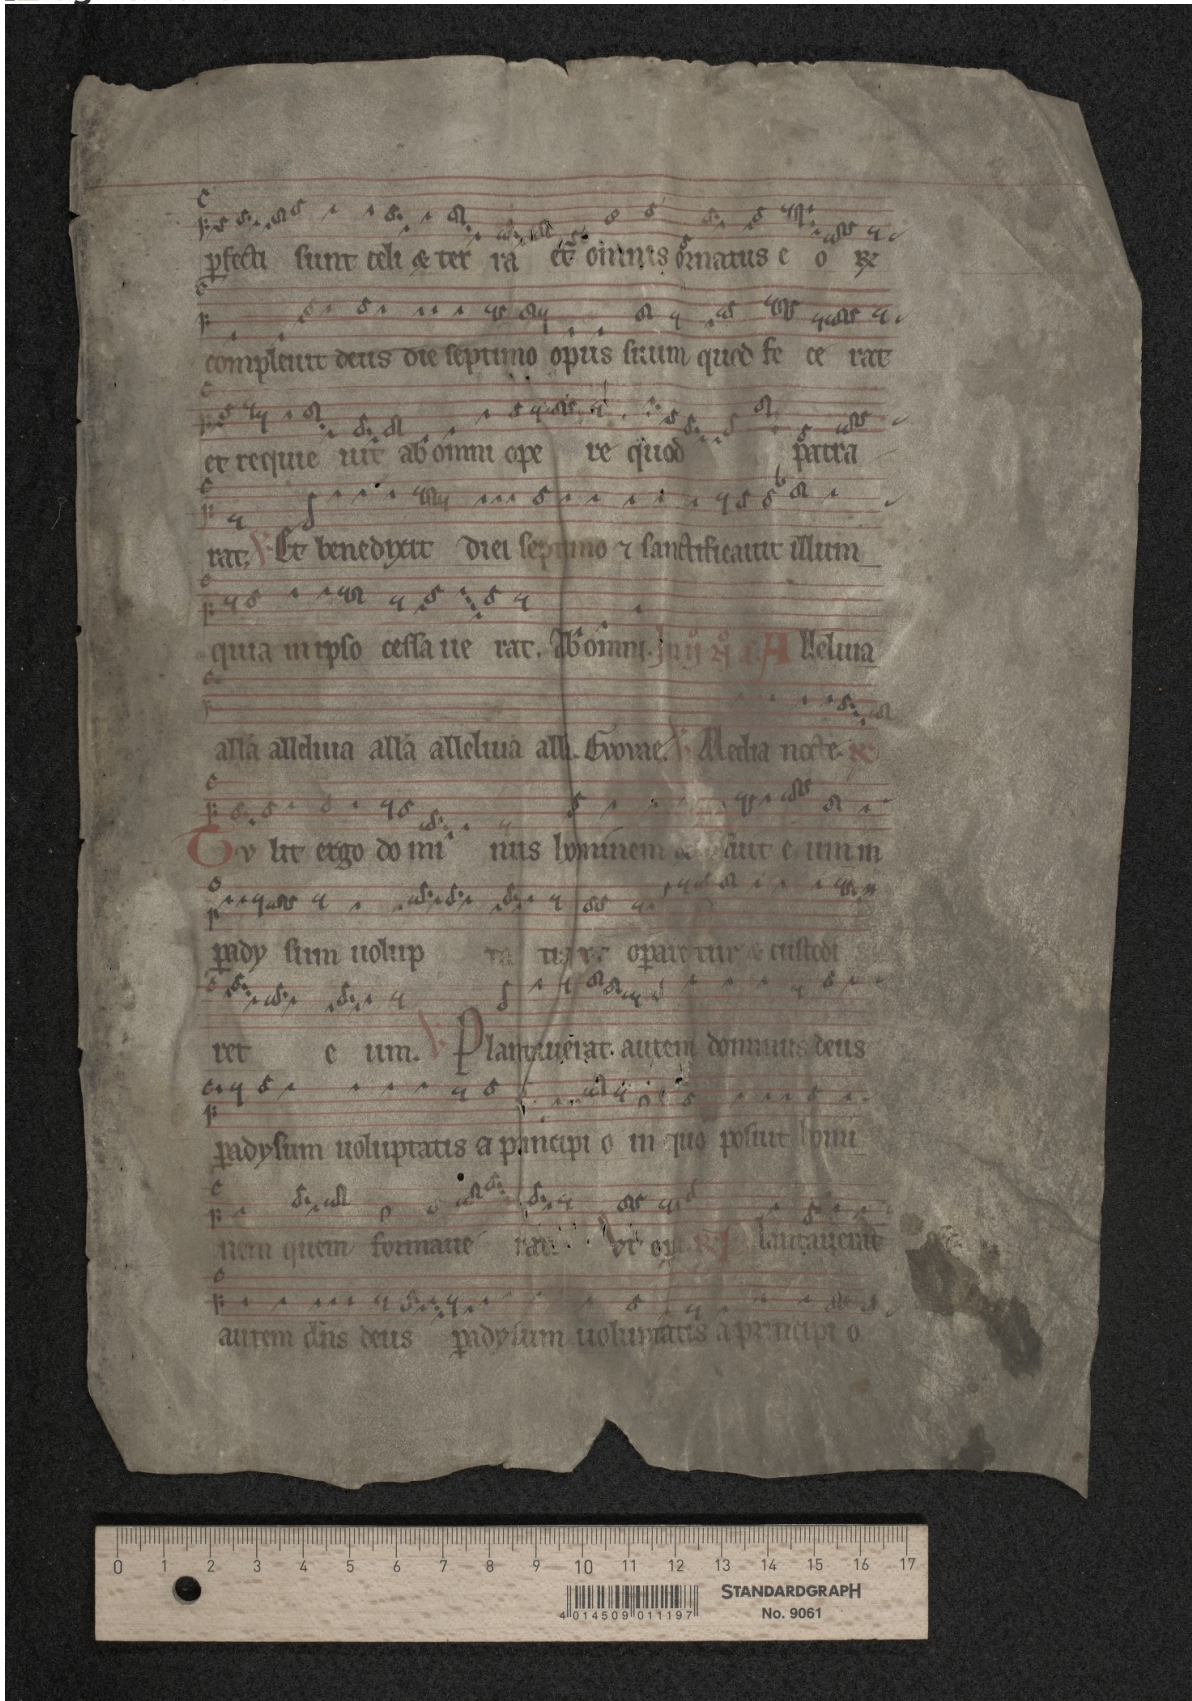 pfecti sunt celi & ter ra et omnis ornatus e o
compleuit deus die septimo opus suum quod fe ce rat
et requie uit ab omni ope re quod patra
rat. Et benedixit diei septimo ⁊ sanctificauit illum
quia in ipso cessa ue rat. Ab omni. Alleluia
alla alleluia alla alleluia all. Evovae. Media nocte.
Tv lit ergo do mi nus hominem & e um in
pady sum uolup ta tis vt opare tur & custodi
ret e um. Plantauerat autem dominus deus
padysum uoluptatis a principi o in quo posuit homi
nem quem formaue rat. vt Plantauerat
autem dns deus padysum uoluptatis a principi o
0 1 2 3 4 5 6 7 8 9 10 11 12 13 14 15 16 17
STANDARDGRAPH
No. 9061
4 014509 011197